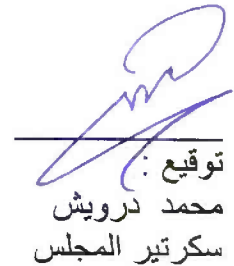 توقيع :
محمد درويش
سكرتير المجلس